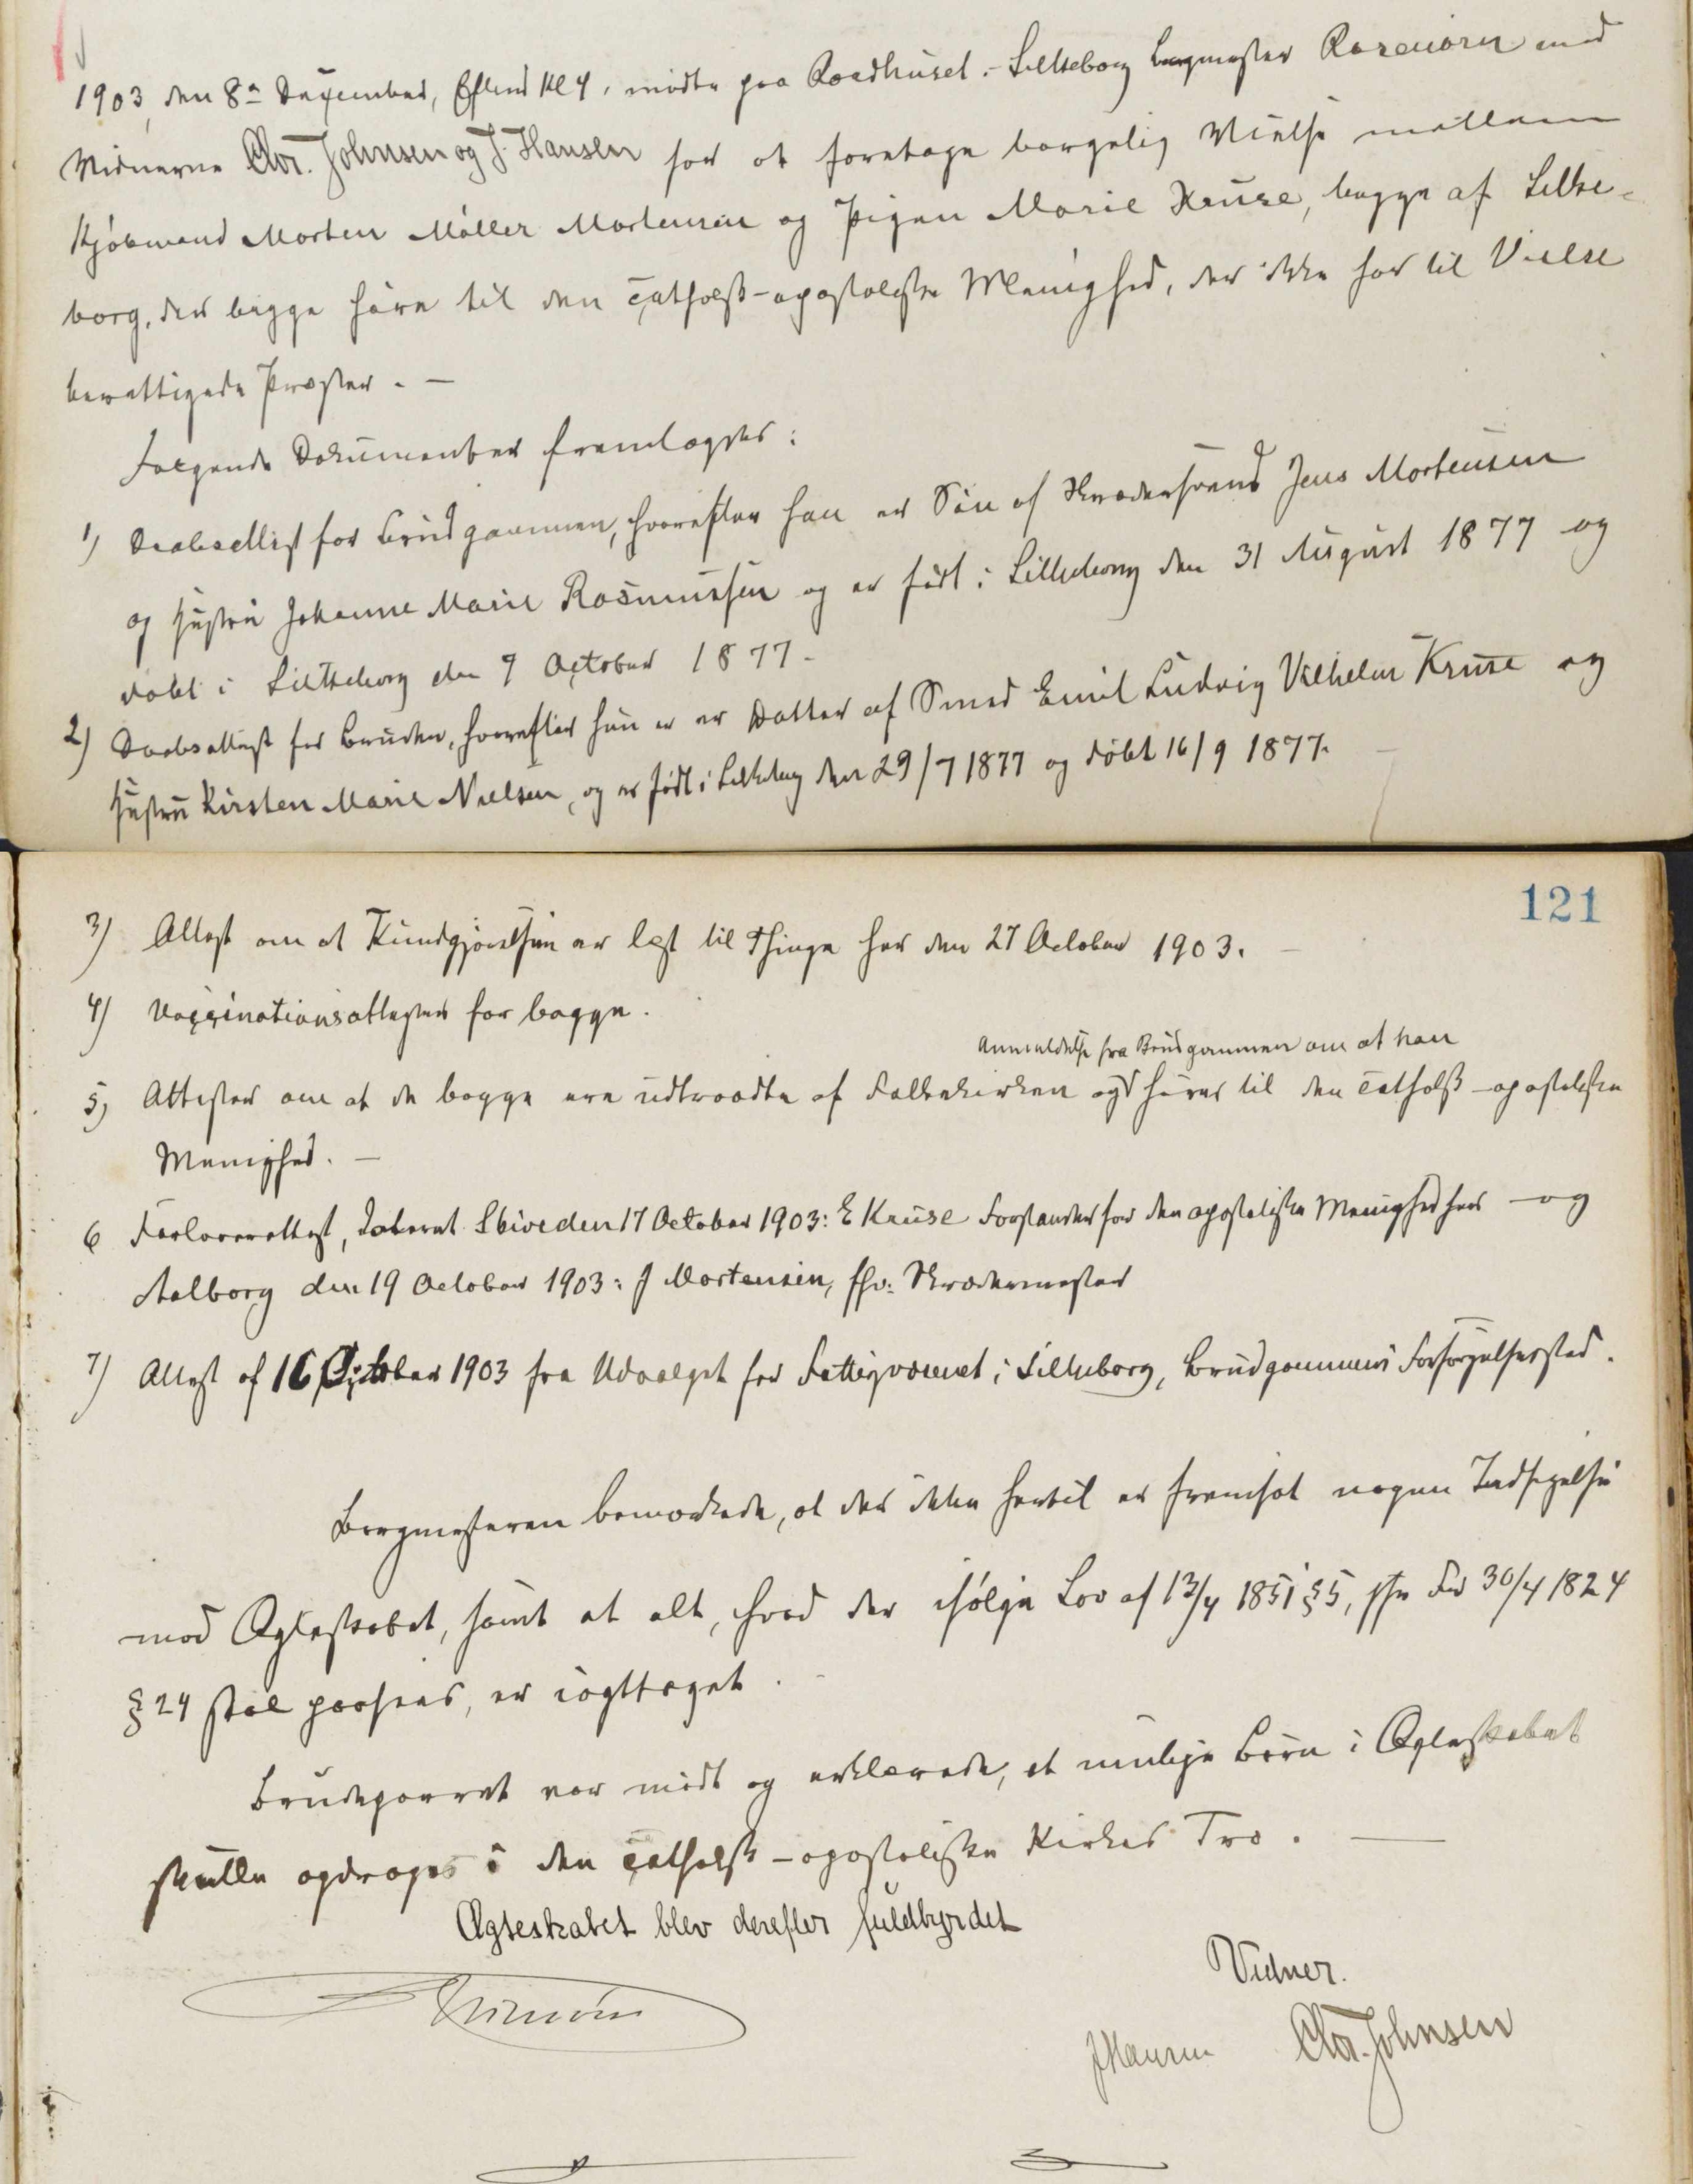 1903, den 8de December, Eftmd Kl 4, mødte paa Raadhuset i Silkeborg Borgmester Rosenørn med
Vidnerne Chr. Johnsen og J. Hansen for at foretage borgelig Vielse mellem
Kjøbmand Morten Møller Mortensen og Pigen Marie Kruse, begge af Silke-
borg, der begge høre til den catholsk-apostolske Menighed, der ikke har til Vielse
berettigede Præster. -
Følgende Dokumenter fremlagdes:
1) Daabsattest for Brudgommen, hvorefter han er Søn af Skrædersvend Jens Mortensen
og Hustru Johanne Marie Rasmussen og er født i Silkeborg den 31 August 1877 og
døbt i Silkeborg den 7 October 1877 -
2) Daabsattest for Bruden, hvorefter hun er er Datter af Smed Emil Ludvig Vilhelm Kruse og
Hustru Kirsten Marie Nielsen, og er født i Silkeborg den 29/7 1877 og døbt 16/9 1877.
121
3) Attest om at Kundgjørelsen er læst til Thinge her den 27 October 1903. -
4) Vaccinationsattester for begge.
Anmeldelse fra Brudgommen om at han
5) Attester om at de begge ere udtraadte af Folkekirken og hører til den catholsk-apostolske
Menighed. -
6 Forloverattest, dateret Skive den 17 October 1903: E Kruse Forstander for den apostoliske Menighed her - og
Aalborg den 19 October 1903: J Mortensen, fhv: Skrædermester
7) Attest af 16 October 1903 fra Udvalget for Fattigvæsenet i Silkeborg, Brudgommens Forsørgelsessted.
Borgmesteren bemærkede, at der ikke hertil er fremsat nogen Indsigelse
mod Ægteskabet, samt at alt, hvad der ifølge Lov af 13/4 1851 § 5, jfr Fr 30/4 1824
§ 24 skal paasees, er iagttaget.
Brudeparret var mødt og erklærede, at mulige Børn i Ægteskabet
skulle opdrages i den catholsk-apostoliske Kirkes Tro. -
Ægteskabet blev derefter fuldbyrdet
Rosenørn
Vidner.
J Hansen Chr. Johnsen